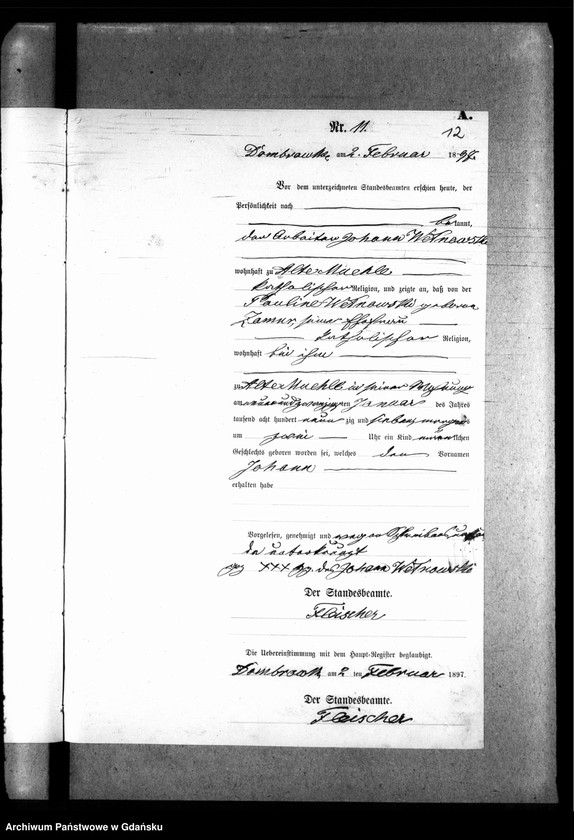 A.
Nr. 11.
12
Dombrowken am 2. Februar 1897.
Vor dem unterzeichneten Standesbeamten erschien heute, der
Persönlichkeit nach
bekannt,
der Arbeiter Johann Wisnowski
wohnhaft zu Alte Muehle
katholischer Religion, und zeigte an, daß von der
Pauline Wisnowski geborene
seiner Ehefrau
katholischer Religion,
wohnhaft bei ihm
zu Alte Muehle in seiner Wohnung
am neunundzwanzigten Januar des Jahres
tausend acht hundert neunzig und sieben morgens
um zwei Uhr ein Kind männlichen
Geschlechts geboren worden sei, welches den Vornamen
Johann
erhalten habe
Vorgelesen, genehmigt und wegen Schreibens
unterkreuzt
gez XXX des Johann Wisnowski
Der Standesbeamte.
Fleischer
Die Uebereinstimmung mit dem Haupt-Register beglaubigt.
Dombrowken am 2 ten Februar 1897.
Der Standesbeamte.
Fleischer
Archiwum Państwowe w Gdańsku